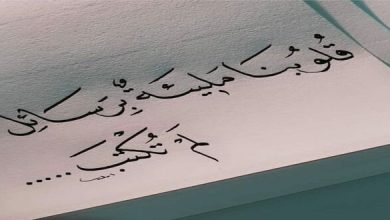 قلوبنا مليئة برسائل
لم تُكتب .....